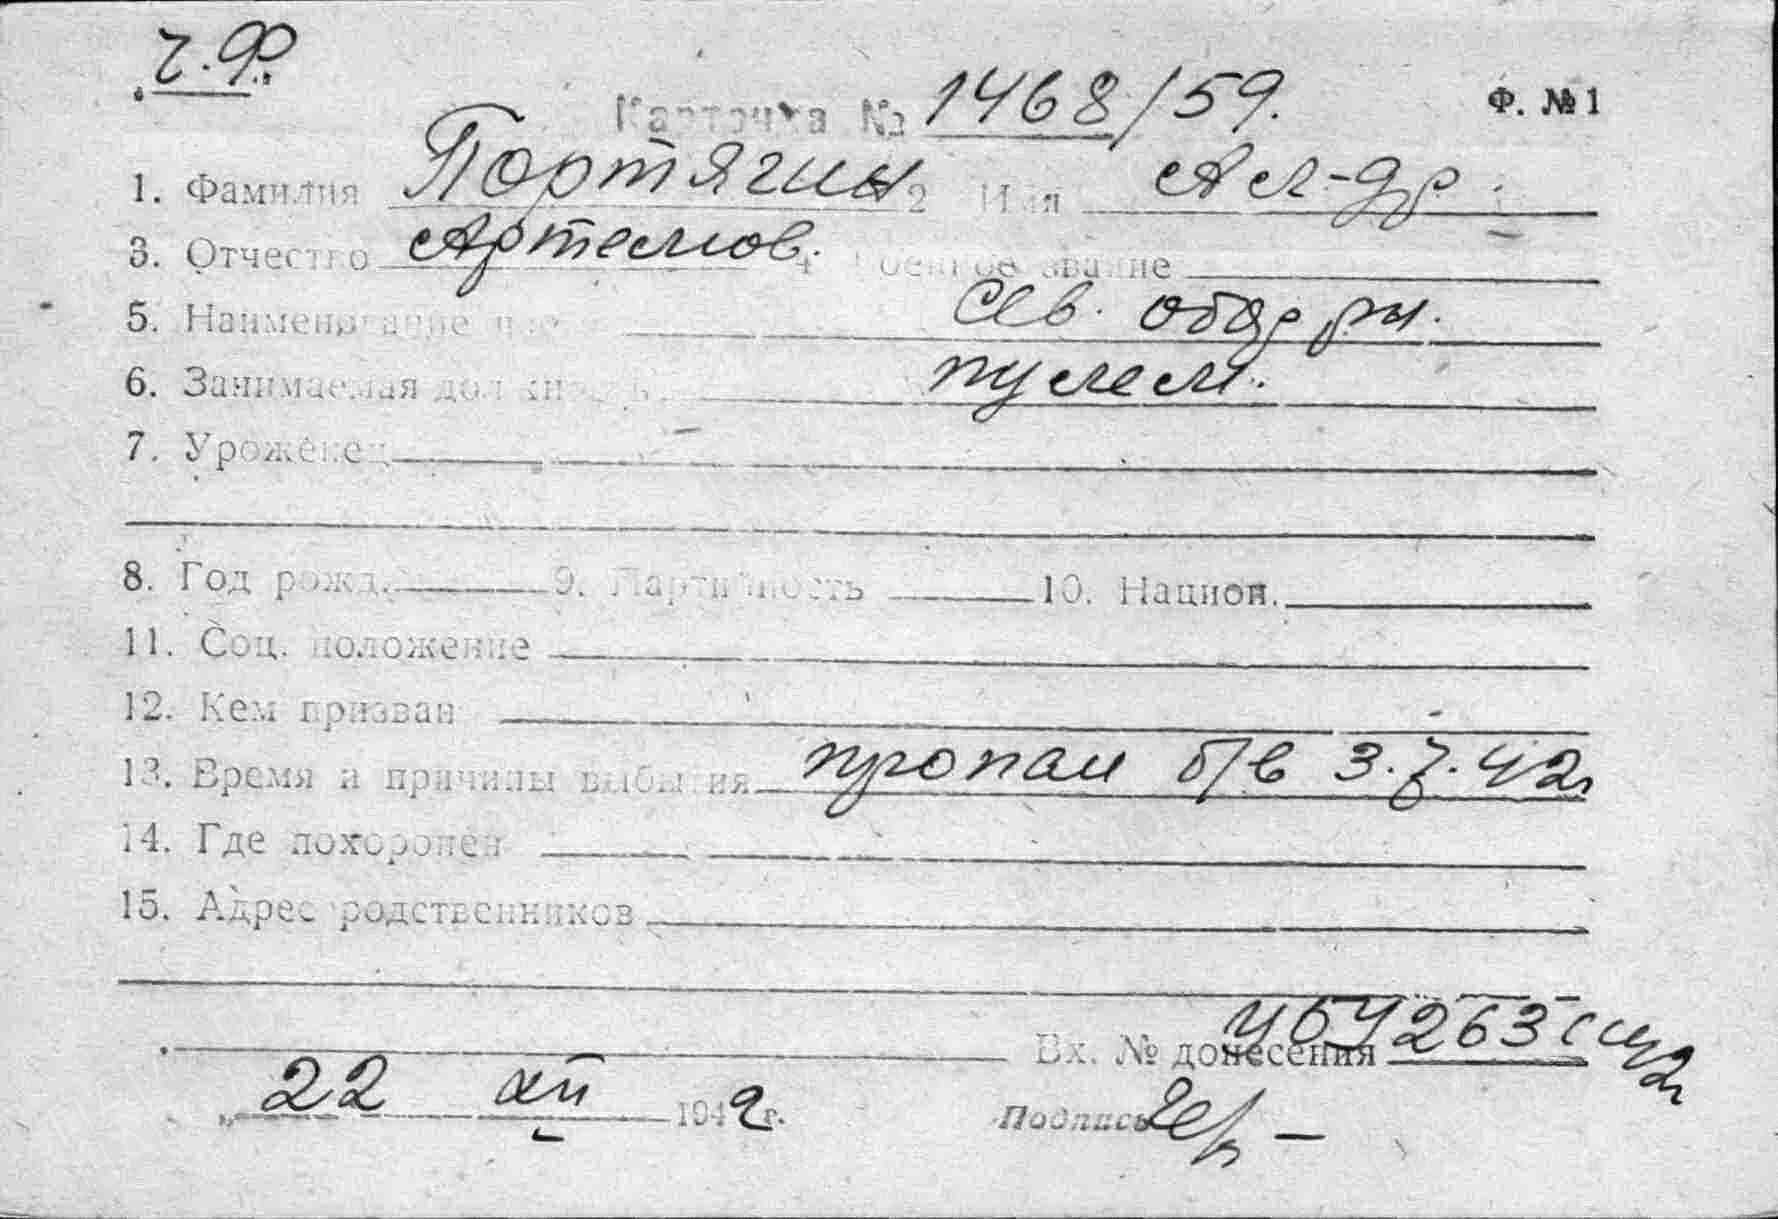 Ч.Ф.
Карточка № 1468/59. Ф. № 1
1. Фамилия Портягин 2 Имя Ал-др.
3. Отчество Артемов. 4 Военное звание
5. Наименование час Сев. об. р-н.
6. Занимаемая должность пулем.
7. Уроженец
8. Год рожд. 9. Партийность 10. Национ.
11. Соц. положение
12. Кем призван
13. Время и причины выбытия пропал б/в 3.7.42г
14. Где похоронен
15. Адрес родственников
Вх. № донесения
„ 22 XII 1942 г. Подпись